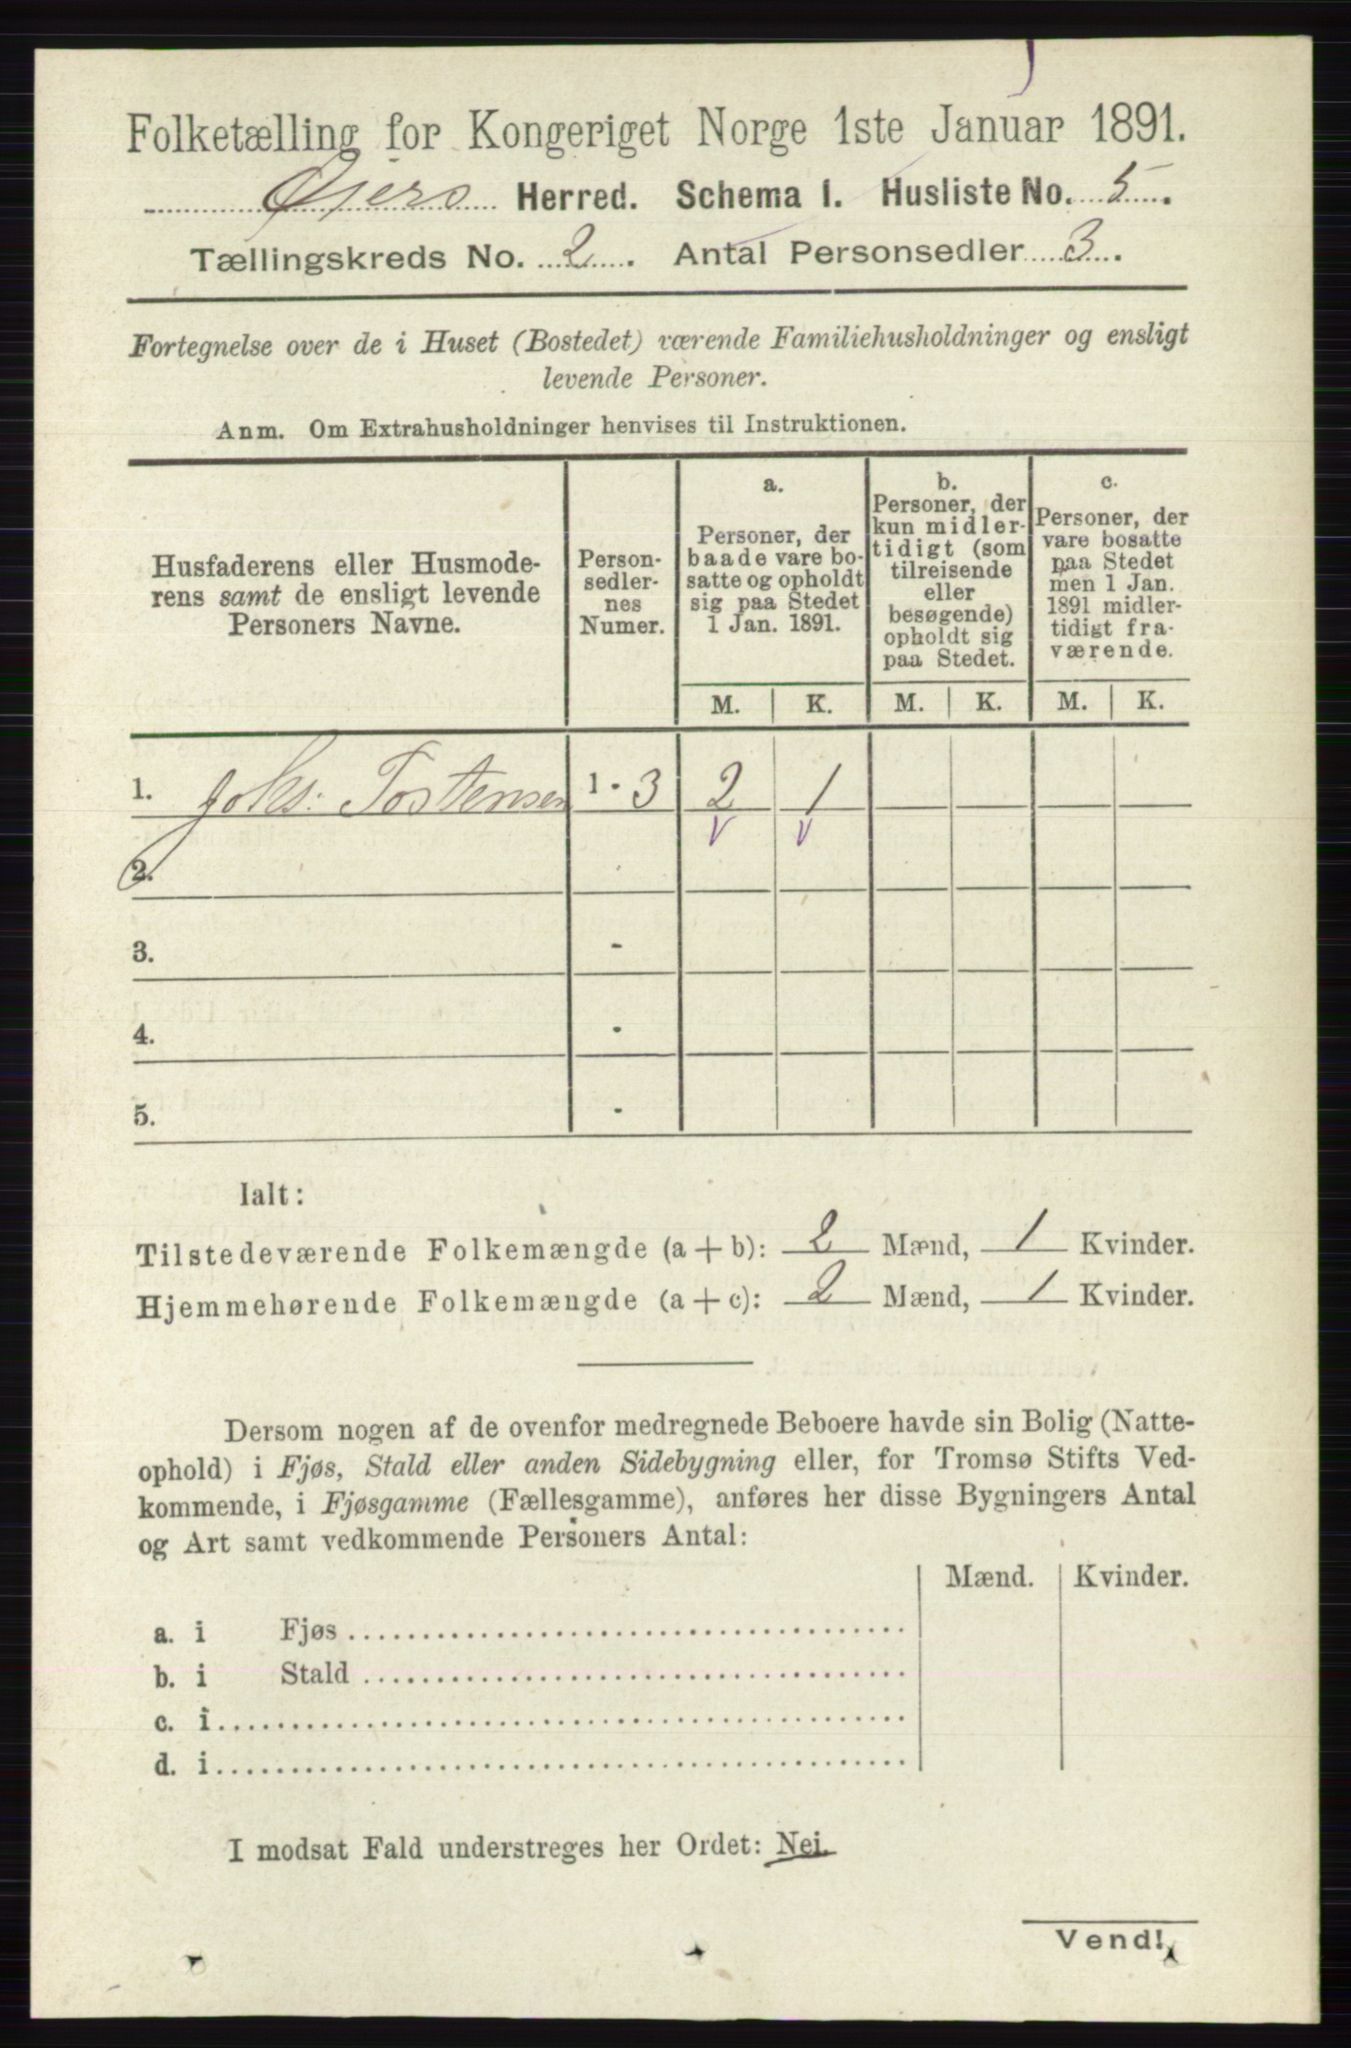 Folketælling for Kongeriget Norge 1ste Januar 1891.
Øiers Herred. Schema I. Husliste No. 5.
Tællingskreds No. 2. Antal Personsedler 3.
Fortegnelse over de i Huset (Bostedet) værende Familiehusholdninger og ensligt
levende Personer.
Anm. Om Extrahusholdninger henvises til Instruktionen.
Husfaderens eller Husmode-
rens samt de ensligt levende
Personers Navne.
Person-
sedler-
nes
Numer.
a.
Personer, der
baade vare bo-
satte og opholdt
sig paa Stedet
1 Jan. 1891.
b.
Personer, der
kun midler-
tidigt (som
tilreisende
eller
besøgende)
opholdt sig
paa Stedet.
c.
Personer, der
vare bosatte
paa Stedet
men 1 Jan.
1891 midler-
tidigt fra-
værende.
M. K. M. K. M. K.
1. Johs. Tostensen 1 - 3 2 1
2. -
3. -
4. -
5. -
Ialt:
Tilstedeværende Folkemængde (a + b): 2 Mænd, 1 Kvinder.
Hjemmehørende Folkemængde (a + c): 2 Mænd, 1 Kvinder.
Dersom nogen af de ovenfor medregnede Beboere havde sin Bolig (Natte-
ophold) i Fjøs, Stald eller anden Sidebygning eller, for Tromsø Stifts Ved-
kommende, i Fjøsgamme (Fællesgamme), anføres her disse Bygningers Antal
og Art samt vedkommende Personers Antal:
Mænd. Kvinder.
a. i Fjøs
b. i Stald
c. i
d. i
I modsat Fald understreges her Ordet: Nei.
Vend!